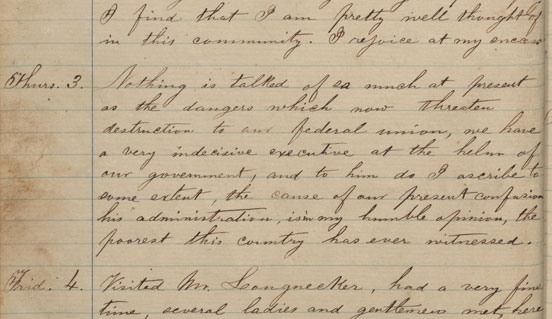 I find that I am pretty well thought of
in this community. I rejoice at my
Thurs. 3. Nothing is talked of so much at present
as the dangers which now threaten
destruction to our federal union, we have
a very indecisive executive at the helm of
our government, and to him do I ascribe to
some extent, the cause of our present confusion
his administration, is in my humble opinion, the
poorest this country has ever witnessed.
Frid. 4. Visited Mr. Longnecker, had a very fine
time, several ladies and gentlemen met, here